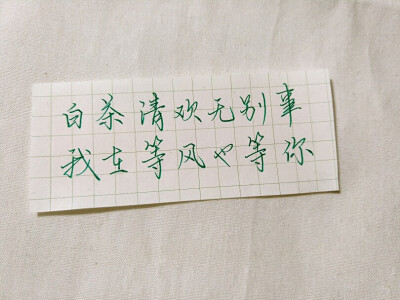 白茶清欢无别事
我在等风也等你